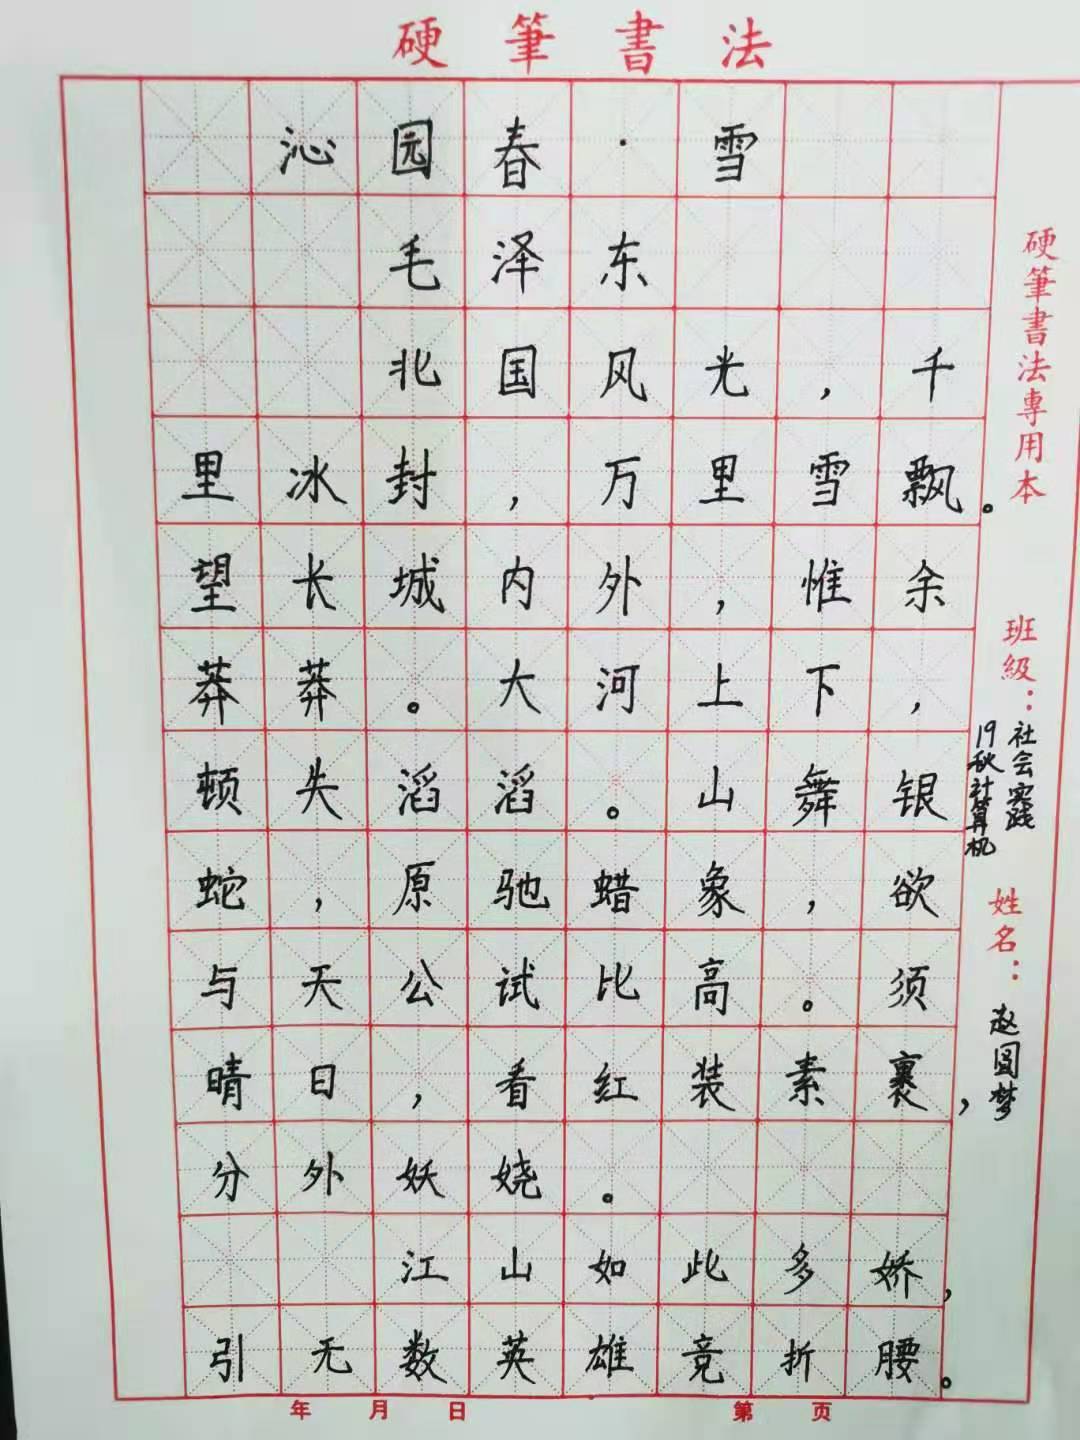 硬筆書法
沁园春·雪
毛泽东
北国风光，千
里冰封，万里雪飘。
望长城内外，惟余
莽莽。大河上下，
顿失滔滔。山舞银
蛇，原驰蜡象，欲
与天公试比高。须
晴日，看红装素裹，
分外妖娆。
江山如此多娇，
引无数英雄竞折腰。
年 月 日 第 页
硬筆書法專用本
班級：社会实践
19秋计算机
姓名：赵圆梦